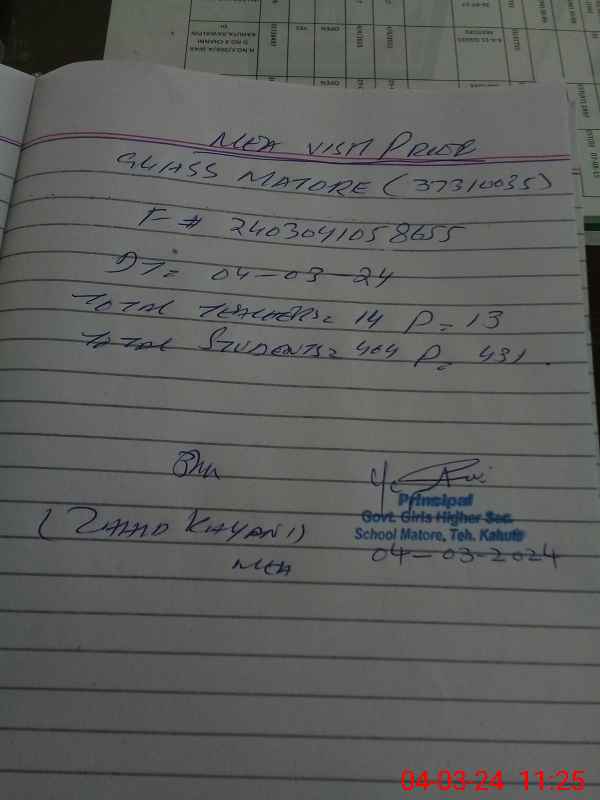 MEA VISIT PROOF
GGHSS MATORE (37310035)
F# 2403041058655
DT= 04-03-24
TOTAL TEACHERS= 14 P= 13
TOTAL STUDENTS= 464 P= 431.
(ZAHID KAYANI)
MEA
Principal
Govt. Girls Higher Sec.
School Matore, Teh. Kahuta
04-03-2024
04-03-24 11:25